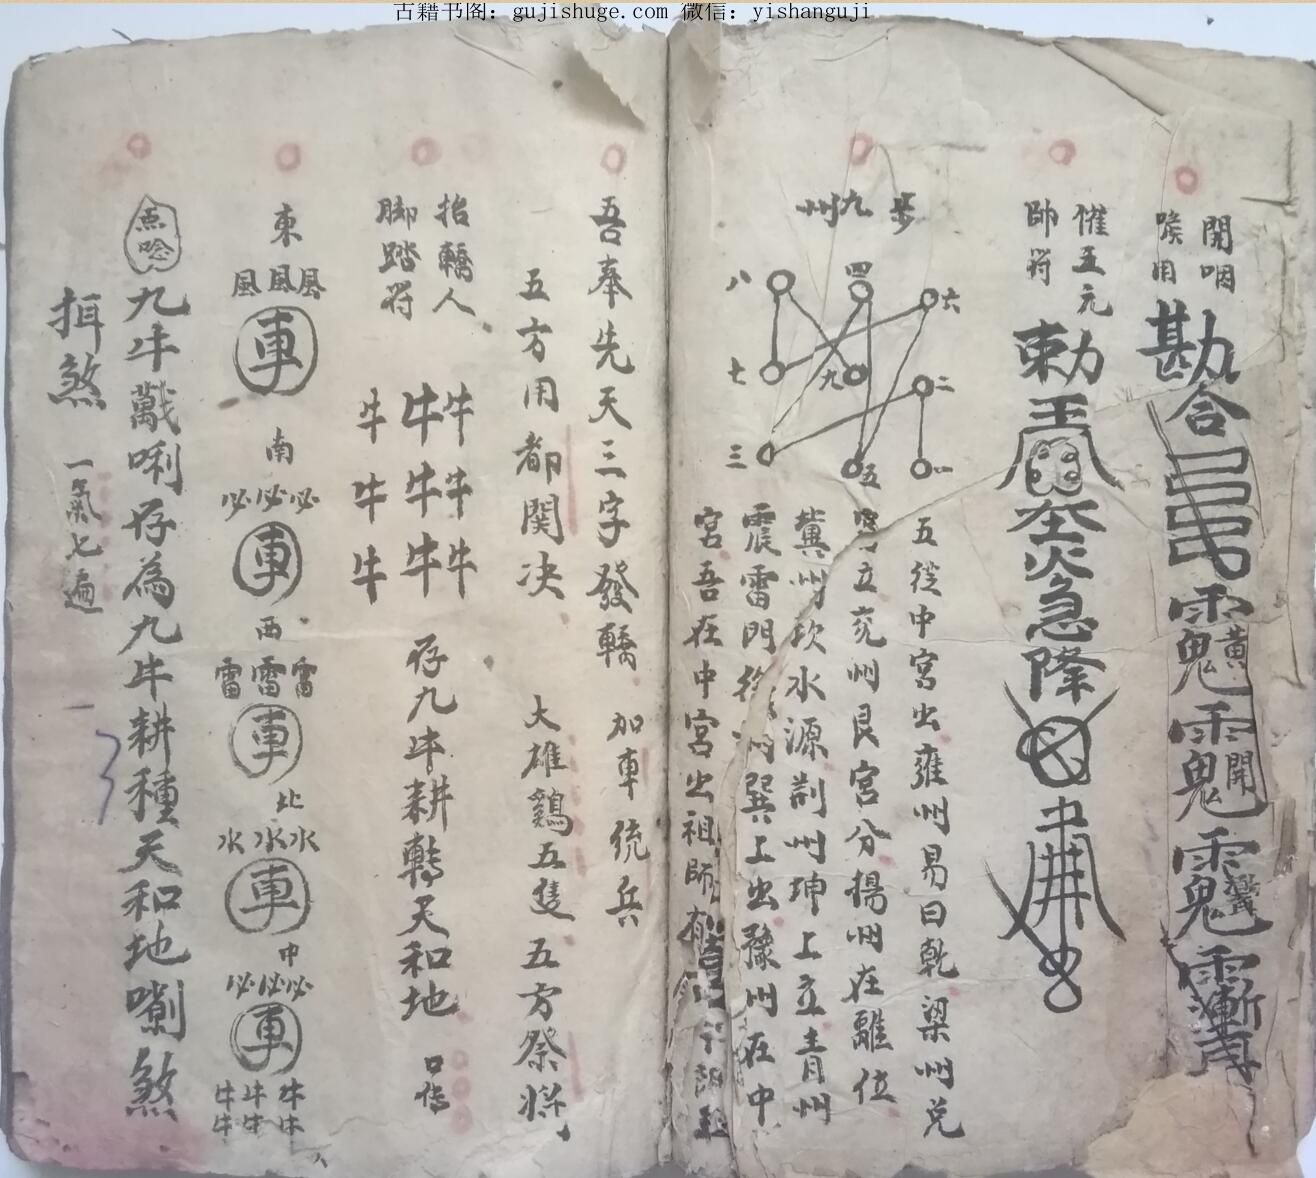 古籍书阁：gujishuge.com 微信：yishanguji
開咽
喉用
勘合
黃
開
催五元
帥符
勅
火急降
步九州
四
六
八
七
九
二
三
五
一
五從中宮出雍州易曰乾梁州兌
宮立兗州艮宮分揚州在離位
冀州坎水源荊州坤上立青州
震雷門徐州巽上出豫州在中
宮吾在中宮出祖師
吾奉先天三字發轎 加車統兵
五方用都関决 大雄鷄五隻五方祭將
抬轎人
脚踏符
牛牛牛
牛牛牛
牛牛牛
存九牛耕轉天和地 口傳
東
風風風
車
南
必必必
車
西
雷雷雷
車
北
水水水
車
中
必必必
車
牛牛牛
牛牛牛
点唸
九牛 唎存為九牛耕種天和地 煞
挕煞 一氣七遍